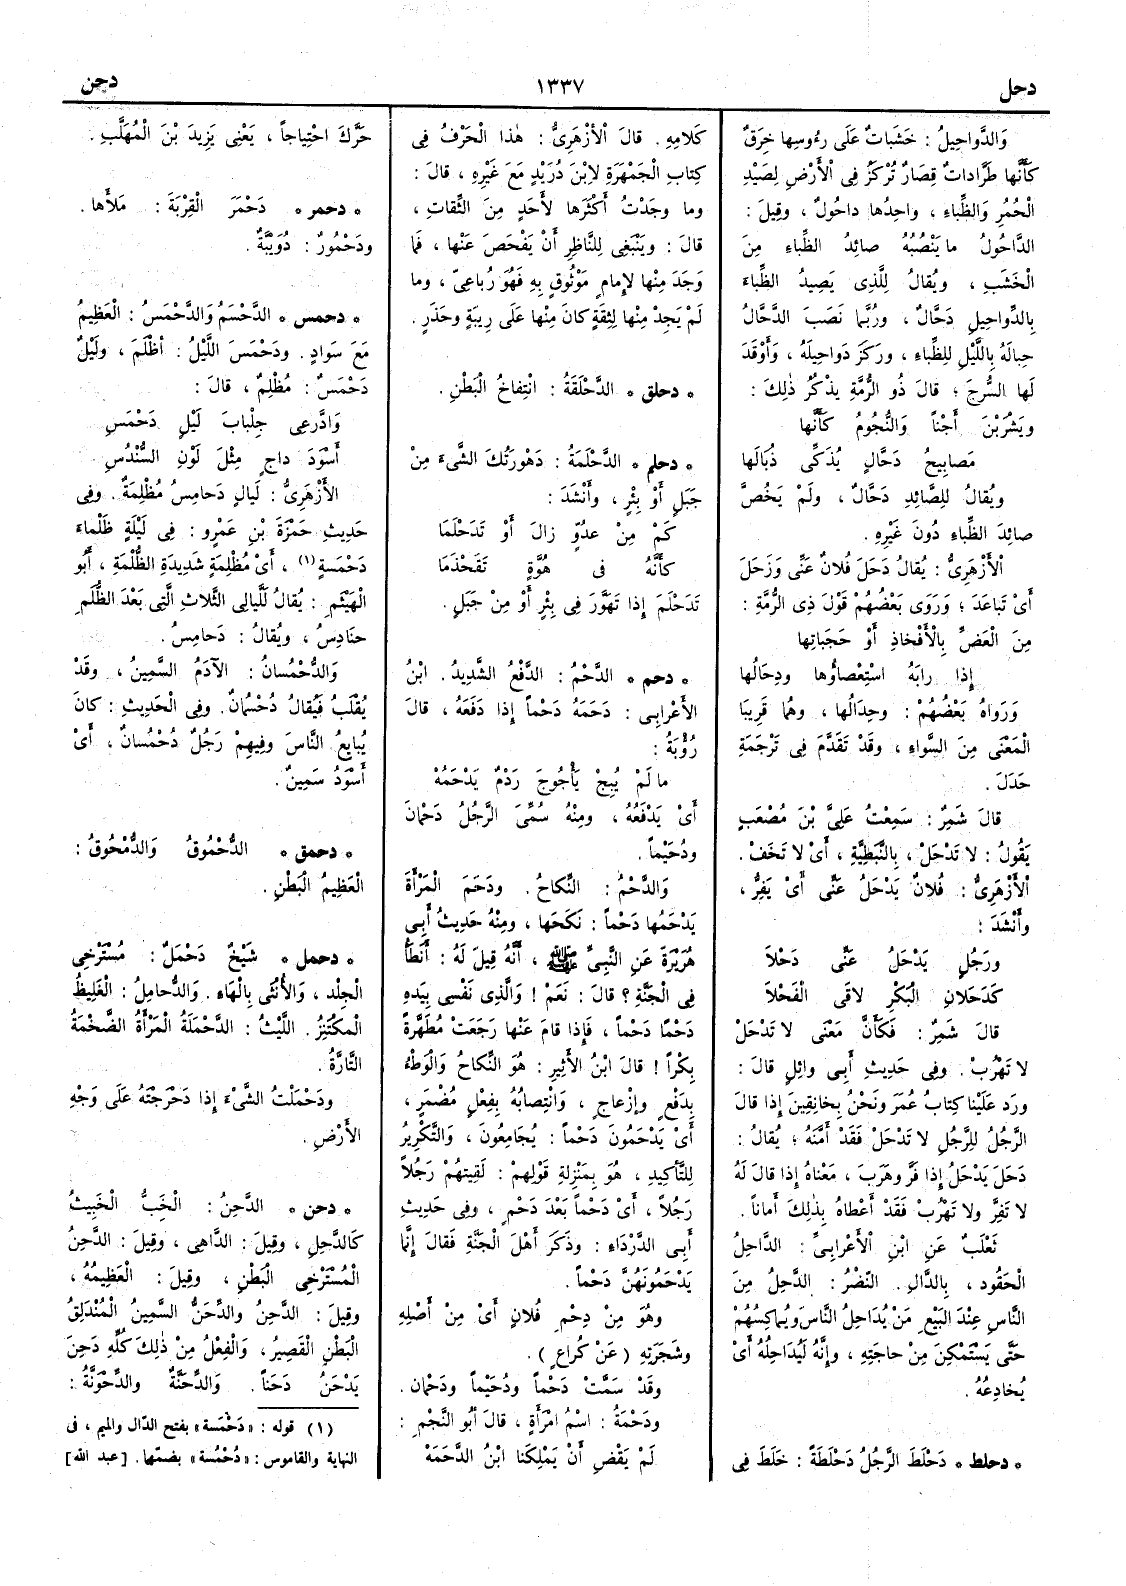 دحل
١٣٣٧
دحن
وَالدَّواحِيلُ : خَشَباتٌ عَلَى رءُوسِها خِرَقٌ
كَأَنَّها طَرَّاداتٌ قِصَارٌ تُرْكَزُ فِى الْأَرْضِ لِصَيْدِ
الْحُمُرِ وَالظِّباءِ ، واحِدُها داحُولٌ ، وقِيلَ :
الدَّاحُولُ ما يَنْصُبُهُ صائِدُ الظِّباءِ مِنَ
الْخَشَبِ ، ويُقالُ لِلَّذِى يَصِيدُ الظِّباءَ
بِالدَّواحِيلِ دَحَّالٌ ، ورُبَّما نَصَبَ الدَّحَّالُ
حِبالَهُ بِاللَّيْلِ لِلظِّباءِ ، ورَكَزَ دَواحِيلَهُ ، وَأَوْقَدَ
لَها السُّرجَ ؛ قالَ ذُو الرُّمَّةِ يَذْكُرُ ذٰلِكَ :
ويَشْرَبْنَ أَجْناً وَالنُّجُومُ كَأَنَّها
مَصابِيحُ دَحَّالٍ يُذَكَّى ذُبَالُها
ويُقالُ لِلصَّائِدِ دَحَّالٌ ، ولَمْ يَخُصَّ
صائِدَ الظِّباءِ دُونَ غَيْرِهِ .
الْأَزْهَرِىُّ : يُقالُ دَحَلَ فُلانٌ عَنِّى وَزَحَلَ
أَىْ تَباعَدَ ؛ وَرَوَى بَعْضُهُمْ قَوْلَ ذِى الرُّمَّةِ :
مِنَ الْعَضِّ بِالْأَفْخاذِ أَوْ حَجَباتِها
إِذا رابَهُ اسْتِعْصاؤُها ودِحَالُها
وَرَواهُ بَعْضُهُمْ : وحِدَالُها ، وهُما قَرِيبَا
الْمَعْنَى مِنَ السَّواءِ ، وقَدْ تَقَدَّمَ فِى تَرْجَمَةِ
حَدَلَ .
قالَ شَمِرٌ : سَمِعْتُ عَلِىَّ بْنَ مُصْعَبٍ
يَقُولُ : لا تَدْحَلْ ، بِالنَّبَطِيَّةِ ، أَىْ لا تَخَفْ .
الْأَزْهَرِىُّ : فُلانٌ يَدْحَلُ عَنِّى أَىْ يَفِرُّ ،
وأَنْشَدَ :
ورَجُلٍ يَدْحَلُ عَنِّى دَحْلَا
كَدَحَلانِ الْبَكْرِ لاقَى الْفَحْلَا
قالَ شَمِرٌ : فَكَأَنَّ مَعْنَى لا تَدْحَلْ
لا تَهْرُبْ . وفِى حَدِيثِ أَبِى وائِلٍ قالَ :
ورَد عَلَيْنا كِتابُ عُمَرَ ونَحْنُ بِخانِقِينَ إِذا قالَ
الرَّجُلُ لِلرَّجُلِ لا تَدْحَلْ فَقَدْ أَمَّنَهُ ؛ يُقالُ :
دَحَلَ يَدْحَلُ إِذا فَرَّ وهَرَبَ ، مَعْناهُ إِذا قالَ لَهُ
لا تَفِرَّ ولا تَهْرُبْ فَقَدْ أَعْطاهُ بِذٰلِكَ أَماناً .
ثَعْلَبٌ عَنِ ابْنِ الْأَعْرابِىِّ : الدَّاحِلُ
الْحَقُود ، بِالدَّالِ . النَّضْرُ : الدَّحِلُ مِنَ
النَّاسِ عِنْدَ الْبَيْعِ مَنْ يُداحِلُ النَّاسَ وَيُماكِسُهُمْ
حَتَّى يَسْتَمْكِنَ مِنْ حاجَتِهِ ، وإِنَّهُ لَيُداحِلُهُ أَىْ
يُخادِعُهُ .
* دحلط * دَحْلَطَ الرَّجُلُ دَحْلَطَةً : خَلَطَ فِى
كَلامِهِ . قالَ الْأَزْهَرِىُّ : هٰذا الْحَرْفُ فِى
كِتابِ الْجَمْهَرَةِ لاِبْنِ دُرَيْدٍ مَعَ غَيْرِهِ ، قالَ :
وما وجَدْتُ أَكْثَرَها لأَحَدٍ مِنَ الثِّقاتِ ،
قالَ : ويَنْبَغِى لِلنَّاظِرِ أَنْ يَفْحَصَ عَنْها ، فَما
وَجَدَ مِنْها لِإمامٍ مَوْثُوقٍ بِهِ فَهُوَ رُباعِىّ ، وما
لَمْ يَجِدْ مِنْها لِثِقَةٍ كانَ مِنْها عَلَى رِيبَةٍ وحَذَرٍ .
* دحلق * الدَّحْلَقَةُ : انْتِفاخُ الْبَطْنِ .
* دحلم * الدَّحْلَمَةُ : دَهْوَرَتُكَ الشَّىءَ مِنْ
جَبَلٍ أَوْ بِئْرٍ ، وأَنْشَدَ :
كَمْ مِنْ عدُوٍّ زالَ أَوْ تَدَحْلَمَا
كَأَنَّهُ فى هُوَّةٍ تَقَحْذَمَا
تَدَحْلَمَ إِذا تَهَوَّرَ فِى بِئْرٍ أَوْ مِنْ جَبَلٍ .
* دحم * الدَّحْمُ : الدَّفْعُ الشَّدِيدُ . ابْنُ
الأَعْرابِى : دَحَمَهُ دَحْماً إِذا دَفَعَهُ ، قالَ
رُؤْبَةُ :
ما لَمْ يُبِجْ يَأْجُوجَ رَدْمٌ يَدْحَمُهْ
أَىْ يَدْفَعُهُ ، ومِنْهُ سُمِّىَ الرَّجُلُ دَحْمانَ
ودُحَيْماً .
وَالدَّحْمُ : النِّكاحُ . ودَحَمَ الْمَرْأَةَ
يَدْحَمُها دَحْماً : نَكَحَها ، ومِنْهُ حَدِيثُ أَبِى
هُرَيْرَةَ عَنِ النَّبِىِّ ﷺ ، أَنَّهُ قِيلَ لَهُ : أَنَطَأُ
فِى الْجَنَّةِ ؟ قالَ : نَعَمْ ! وَالَّذِى نَفْسِى بِيَدِهِ
دَحْمًا دَحْماً ، فَإِذا قامَ عَنْها رَجَعَتْ مُطَهَّرةً
بِكْراً ! قالَ ابْنُ الأَثِيرِ : هُوَ النِّكاحُ وَالْوَطْءُ
بِدَفْعٍ وإِزْعاجٍ ، وَانْتِصابُهُ بِفِعْلٍ مُضْمَرٍ ،
أَىْ يَدْحَمُونَ دَحْماً : يُجَامِعُونَ ، وَالتَّكْرِيرُ
لِلتَّأْكِيدِ ، هُوَ بِمَنْزِلَةِ قَوْلِهِمْ : لَقِيتُهُمْ رَجُلاً
رَجُلاً ، أَىْ دَحْماً بَعْدَ دَحْمٍ ، وفِى حَدِيثِ
أَبِى الدَّرْدَاءِ : وذَكَرَ أَهْلَ الْجَنَّةِ فَقالَ إِنَّما
يَدْحَمُونَهُنَّ دَحْماً .
وهُوَ مِنْ دِحْمِ فُلانٍ أَىْ مِنْ أَصْلِهِ
وشَجَرَتِهِ ( عَنْ كُراعٍ ) .
وقَدْ سَمَّتْ دَحْماً ودُحَيْماً ودَحْمان .
ودَحْمَةُ : اسْمُ امْرَأَةٍ ، قالَ أَبُو النَّجْمِ :
لَمْ يَقْضِ أَنْ يَمْلِكَنا ابْنُ الدَّحَمَهْ
حَرَّكَ احْتِياجاً ، يَعْنِى يَزِيدَ بْنَ الْمُهَلَّبِ .
* دحمر * دَحْمَرَ الْقِرْبَةَ : مَلأَها .
ودَحْمُورٌ : دُوَيْبَّةٌ .
* دحمس * الدَّحْسَمُ وَالدَّحْمَسُ : الْعَظِيمُ
مَعَ سَوادٍ . ودَحْمَسَ اللَّيْلُ : أَظْلَمَ ، ولَيْلٌ
دَحْمَسٌ : مُظْلِمٌ ، قالَ :
وَادَّرِعِى جِلْبابَ لَيْلٍ دَحْمَسِ
أَسْوَدَ داجٍ مِثْلَ لَوْنِ السُّنْدُسِ
الأَزْهَرِىُّ : لَيالٍ دَحامِسُ مُظْلِمَةٌ . وفِى
حَدِيثِ حَمْزَةَ بْنِ عَمْرٍو : فِى لَيْلَةٍ ظَلْماءَ
دَحْمَسَةٍ (١) ، أَىْ مُظْلِمَةٍ شَدِيدَةِ الظُّلْمَةِ ، أَبُو
الْهَيْثَمِ : يُقالُ لِلَّيالِى الثَّلاثِ الَّتِى بَعْدَ الظُّلَمِ
حنَادِسُ ، ويُقالُ : دَحامِسُ .
وَالدُّحْمُسانُ : الآدَمُ السَّمِينُ ، وقَدْ
يُقْلَبُ فَيُقالُ دُحْسُمانٌ . وفِى الْحَدِيثِ : كانَ
يُبايِعُ النَّاسَ وفِيهِمْ رَجُلٌ دُحْمُسانٌ ، أَىْ
أَسْوَدُ سَمِينٌ .
* دحمق * الدُّحْمُوقُ وَالدُّمْحُوقُ :
الْعَظِيمُ الْبَطْنِ .
* دحمل * شَيْخٌ دَحْمَلٌ : مُسْتَرْخِى
الْجِلْد ، وَالأُنْثَى بِالْهَاءِ . وَالدُّحامِلُ : الْغَلِيظُ
الْمكْتَنِزُ . اللَّيْثُ : الدَّحْمَلَةُ الْمَرْأَةُ الضَّخْمَةُ
التَّارَّةُ .
ودَحْمَلْتُ الشَّىْءَ إِذا دَحْرَجْتَهُ عَلَى وَجْهِ
الأَرْضِ .
* دحن * الدَّحِنُ : الْخَبُّ الْخَبِيثُ
كَالدَّحِلِ ، وقِيلَ : الدَّاهِى ، وقِيلَ : الدَّحِنُ
الْمُسْتَرْخِى الْبَطْنِ ، وقِيلَ : الْعَظِيمُهُ ،
وقِيلَ : الدَّحِنُ والدِّحَنُّ السَّمِينُ الْمُنْدَلِقُ
الْبَطْنِ الْقَصِيرُ ، وَالْفِعْلُ مِنْ ذٰلِكَ كُلِّهِ دَحِنَ
يَدْحَنُ دَحَناً . وَالدِّحَنَّةُ والدِّحْوَنَّةُ :
(١) قوله : «دَحْمَسة» بفتح الدّال والميم ، فى
النهاية والقاموس : «دُحْمُسة» بضمّها . [عبد الله]